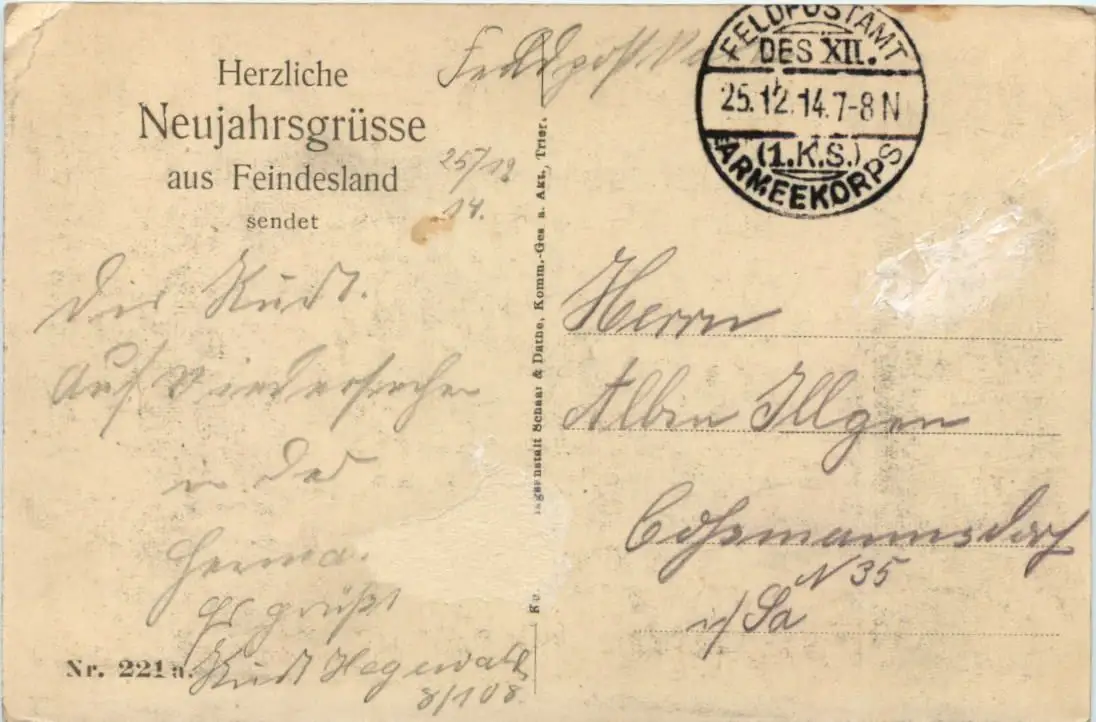 Herzliche
Neujahrsgrüsse
aus Feindesland
sendet
25/12
14.
Dir Kurt.
Auf Wiedersehen
in der
Heima.
Es grüßt
Kurt Hegewald
8/108
Nr. 221a.
Feldpost
FELDPOSTAMT
DES XII.
25.12.14.7-8 N
(1.K.S.)
ARMEEKORPS
Herrn
Albin Illgen
Coßmannsdorf
N 35
i/Sa
Schaar & Dathe, Komm.-Ges a. Akt., Trier.